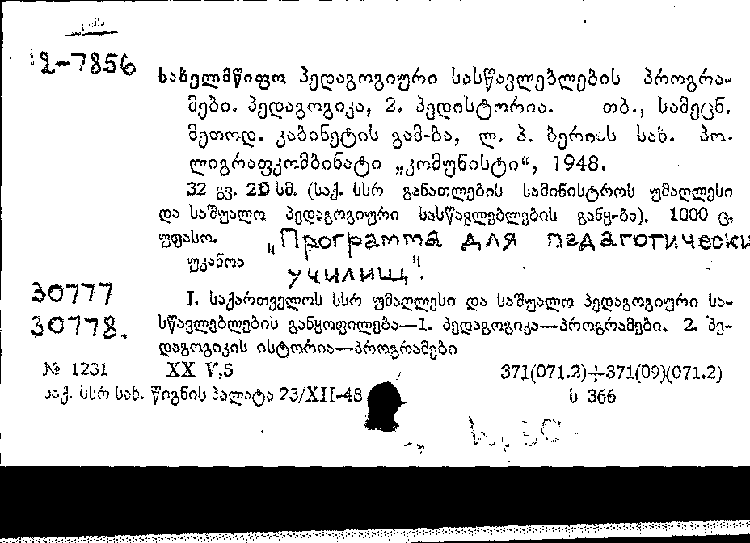 12-7856
სახელმწიფო პედაგოგიური სასწავლებლების პროგრა-
მები. პედაგოგიკა, 2. პედისტორია. თბ., სამეცნ.
მეთოდ. კაბინეტის გამ-ბა, ლ. პ. ბერიას სახ. პო-
ლიგრაფკომბინატი „კომუნისტი“, 1948.
32 გვ. 20 სმ. (საქ. სსრ განათლების სამინისტროს უმაღლესი
და საშუალო პედაგოგიური სასწავლებლების განყ-ბა). 1000 ც.
უფასო. „Программа для педагогически
უკანოა училищ".
30777
30778.
I. საქართველოს სსრ უმაღლესი და საშუალო პედაგოგიური სა-
სწავლებლების განყოფილება—1. პედაგოგიკა—პროგრამები. 2. პე-
დაგოგიკის ისტორია—პროგრამები
№ 1231 XX V,5 371(071.2)+371(09)(071.2)
საქ. სსრ სახ. წიგნის პალატა 23/XII-48 ს 366